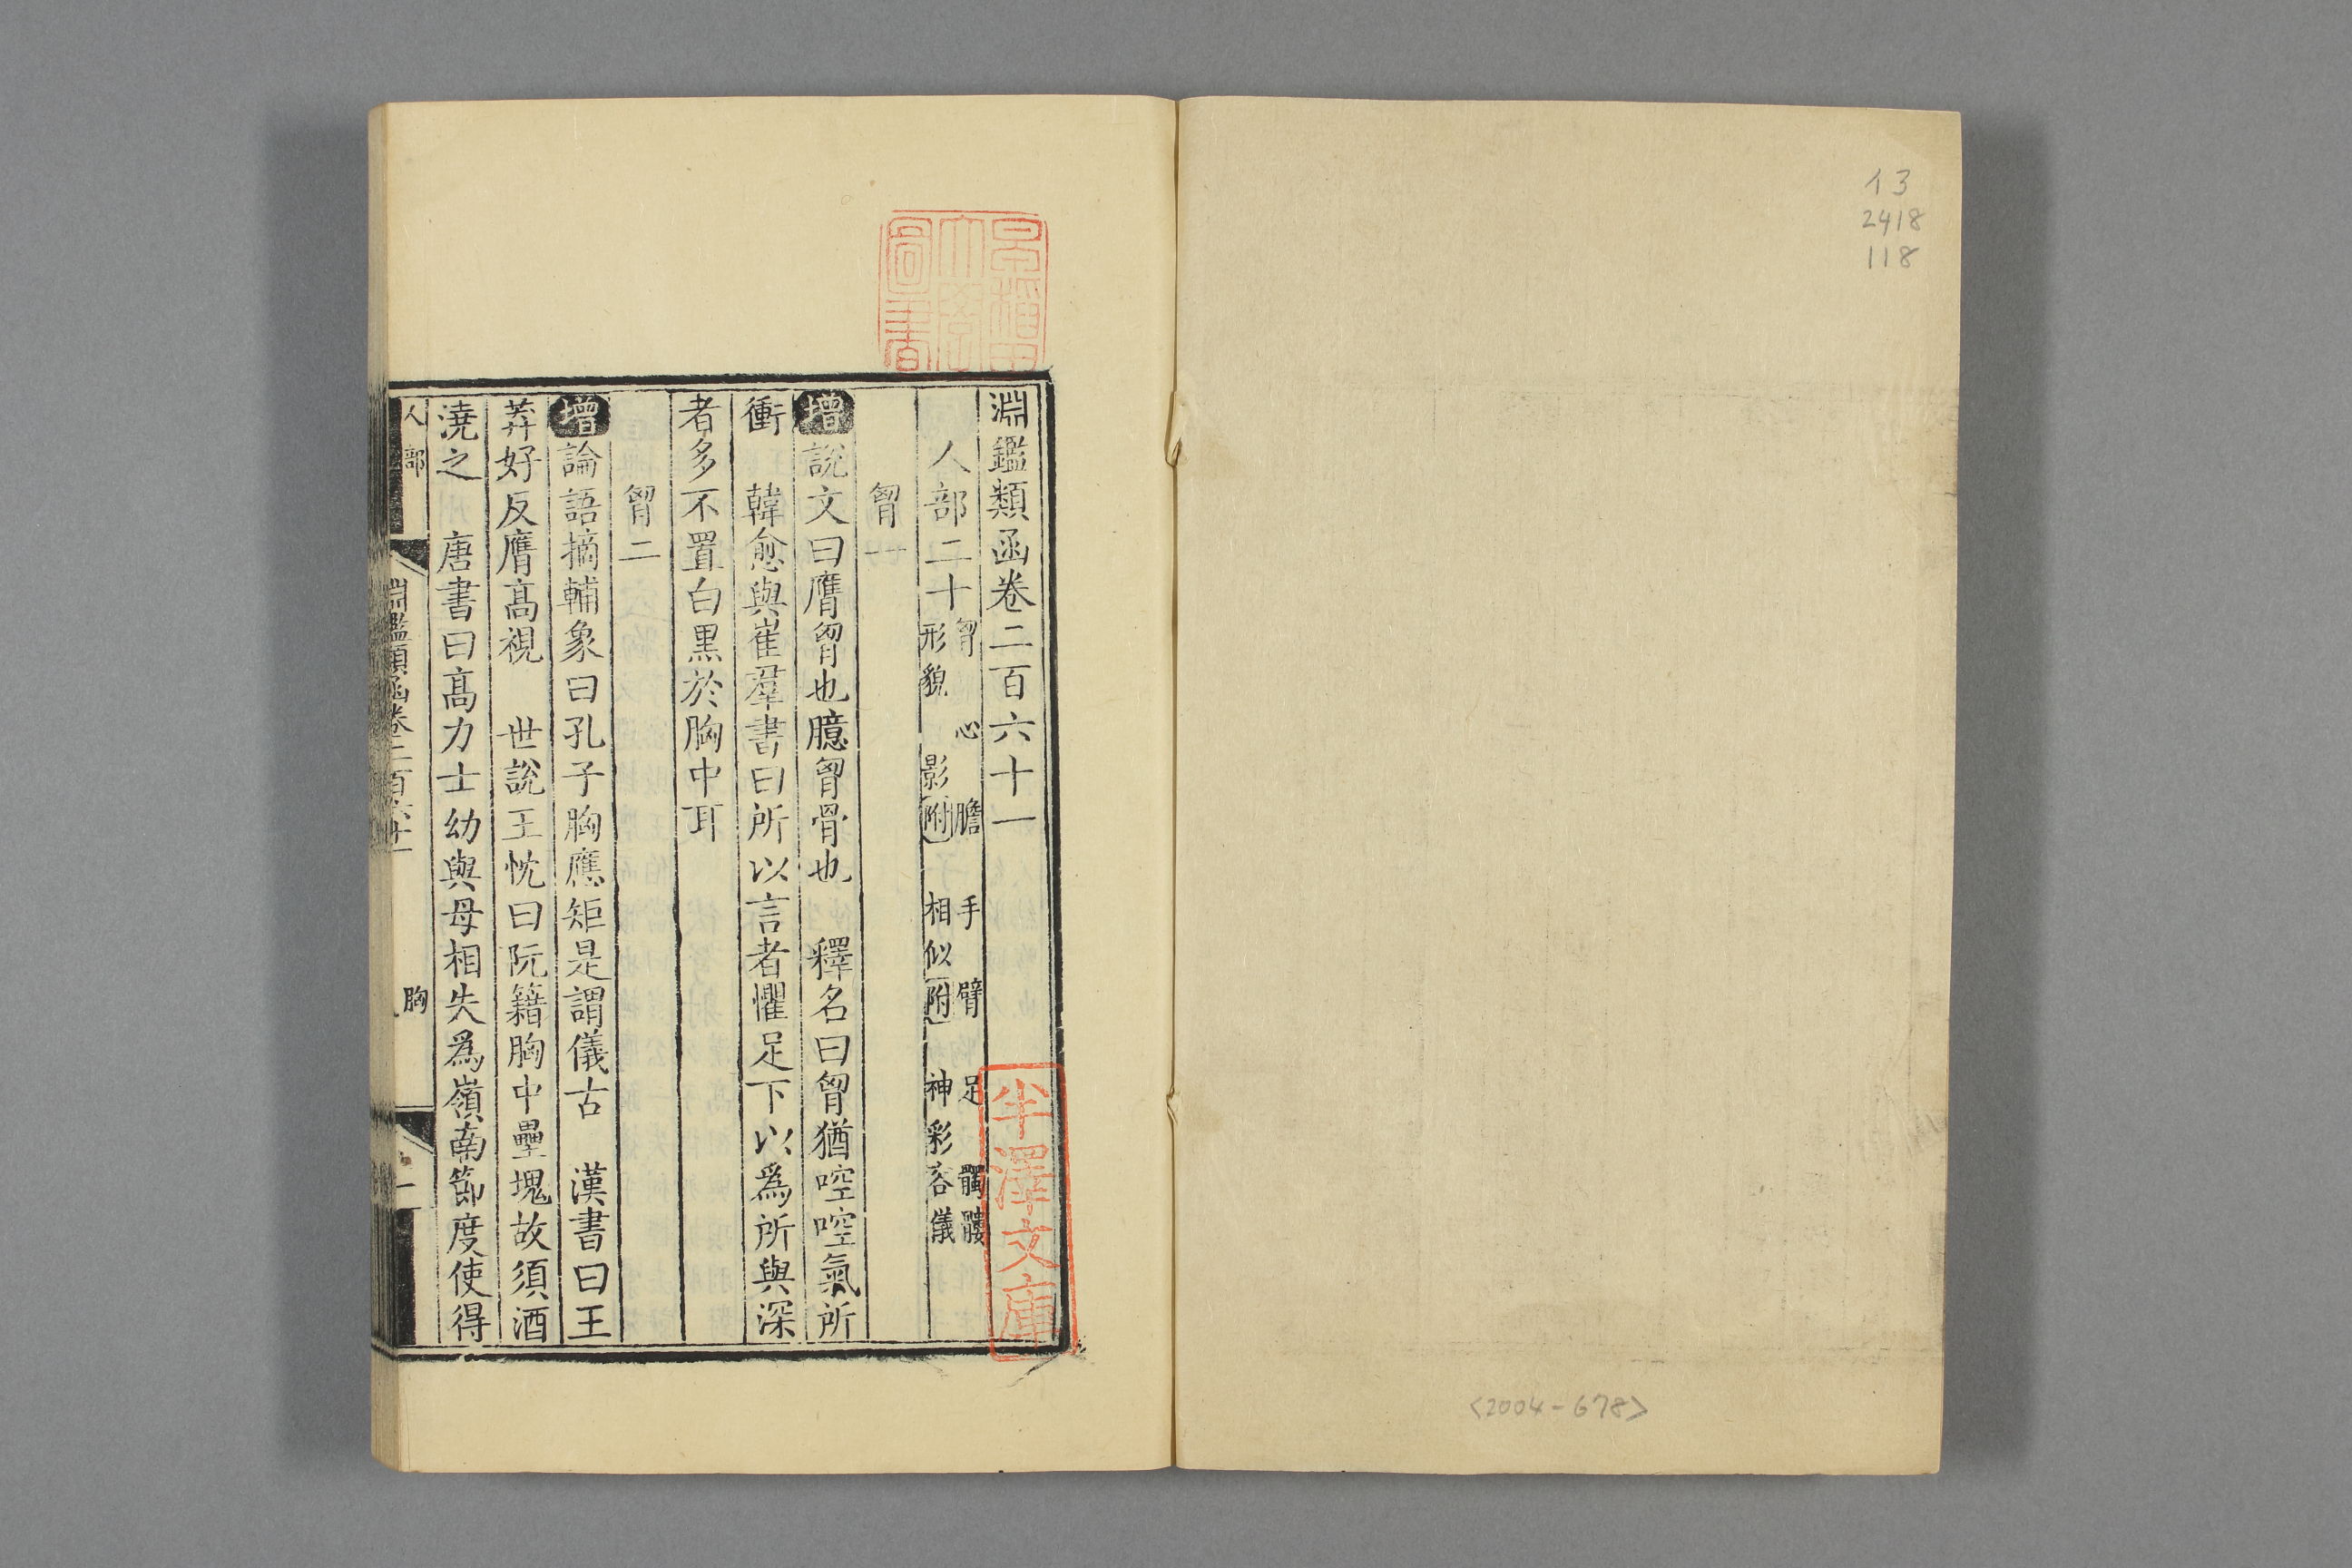 13
2418
118
<2004-678>
淵鑑類函卷二百六十一
人部二十
胷 心 膽 手 臂 足 髑髏
形貌 影附 相似附 神彩容儀
胷一
增說文曰膺胷也臆胷骨也 釋名曰胷猶啌啌氣所
衝 韓愈與崔羣書曰所以言者懼足下以爲所與深
者多不置白黒於胸中耳
胷二
增論語摘輔象曰孔子胸應矩是謂儀古 漢書曰王
莽好反膺髙視 世說王忱曰阮籍胸中壘塊故須酒
澆之 唐書曰髙力士幼與母相失爲嶺南節度使得
人部
淵鑑類函卷二百六十一
胸
一
半澤文庫